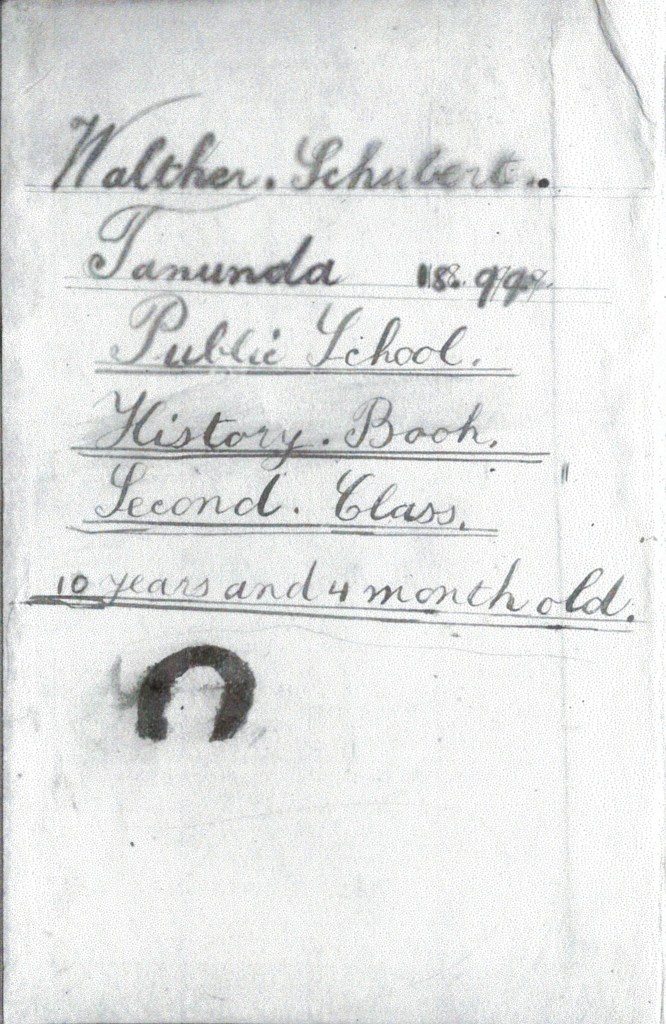 Walther. Schubert..
Tanunda 18.99.
Public School.
History. Book.
Second. Class.
10 years and 4 month old.